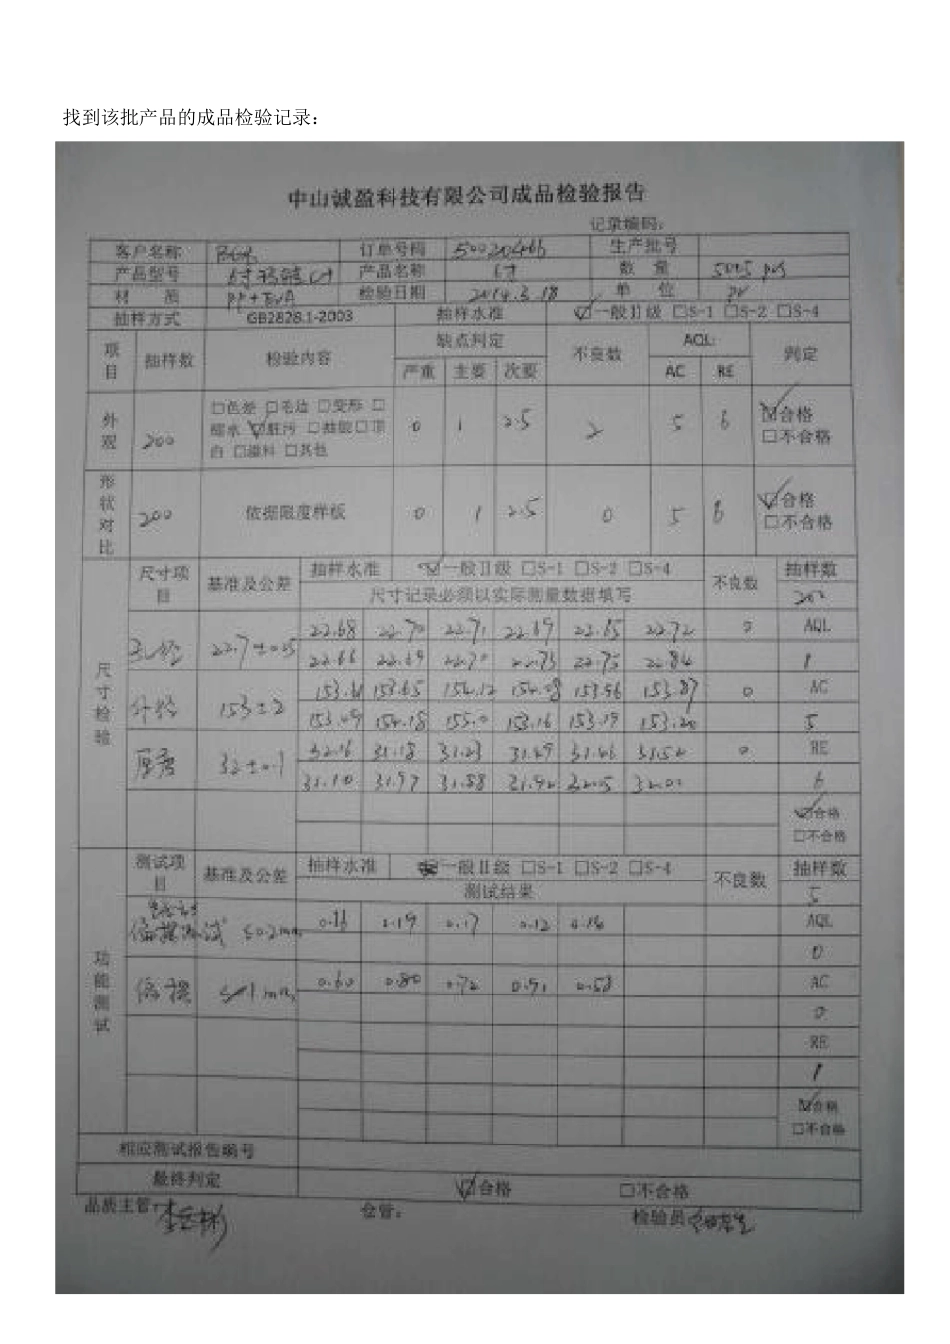 找到该批产品的成品检验记录：
中山诚盈科技有限公司成品检验报告
记录编码：
客户名称 订单号码 50020466 生产批号
产品型号 产品名称 6寸 数 量 5005 pcs
材 质 PP+EVA 检验日期 2014.3.18 单 位
抽样方式 GB2828.1-2003 抽样水准 ☑一般II级 □S-1 □S-2 □S-4
项目 抽样数 检验内容 缺点判定 不良数 AQL: 判定
严重 主要 次要 AC RE
外观 200 □色差 □毛边 □变形 □
缩水 ☑脏污 □抽胶 □顶
白 □溢料 □其他
0 1 2.5 2 5 6 ☑合格
□不合格
形状对比 200 依据限度样板 0 1 2.5 0 5 6 ☑合格
□不合格
尺寸检验
尺寸项目 基准及公差 抽样水准 ☑一般II级 □S-1 □S-2 □S-4 不良数 抽样数
尺寸记录必须以实际测量数据填写 200
孔径 22.68 22.70 22.71 22.69 22.65 22.72 0 AQL
22.66 22.69 22.70 22.73 22.75 22.84 1
外径 153±2 153.61 153.65 154.12 154.08 153.96 153.87 0 AC
153.09 154.18 155.0 153.16 153.19 153.20 5
厚度 32±0.1 32.16 31.18 31.23 31.49 31.46 31.52 0 RE
31.10 31.97 31.88 31.92 32.05 32.00 6
☑合格
□不合格
功能测试
测试项目 基准及公差 抽样水准 一般II级 □S-1 □S-2 □S-4 不良数 抽样数
测试结果 5
测试 ≤0.2mm 0.16 0.19 0.17 0.12 0.16 AQL
0
偏摆 ≤1mm 0.60 0.80 0.72 0.51 0.58 AC
0
RE
1
☑合格
□不合格
相应测试报告编号
最终判定 ☑合格 □不合格
品质主管： 仓管： 检验员